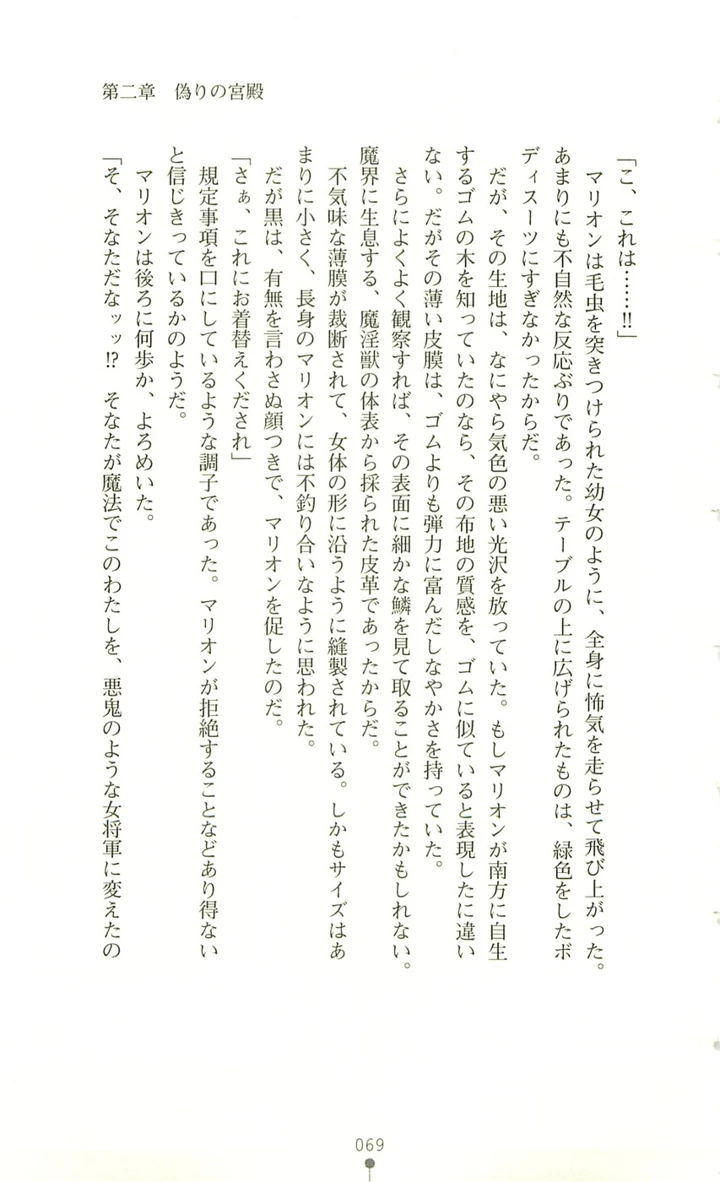 第二章　偽りの宮殿
「こ、これは……!!」
　マリオンは毛虫を突きつけられた幼女のように、全身に怖気を走らせて飛び上がった。
あまりにも不自然な反応ぶりであった。テーブルの上に広げられたものは、緑色をしたボ
ディスーツにすぎなかったからだ。
　だが、その生地は、なにやら気色の悪い光沢を放っていた。もしマリオンが南方に自生
するゴムの木を知っていたのなら、その布地の質感を、ゴムに似ていると表現したに違い
ない。だがその薄い皮膜は、ゴムよりも弾力に富んだしなやかさを持っていた。
　さらによくよく観察すれば、その表面に細かな鱗を見て取ることができたかもしれない。
魔界に生息する、魔淫獣の体表から採られた皮革であったからだ。
　不気味な薄膜が裁断されて、女体の形に沿うように縫製されている。しかもサイズはあ
まりに小さく、長身のマリオンには不釣り合いなように思われた。
　だが黒は、有無を言わさぬ顔つきで、マリオンを促したのだ。
「さぁ、これにお着替えくだされ」
　規定事項を口にしているような調子であった。マリオンが拒絶することなどあり得ない
と信じきっているかのようだ。
　マリオンは後ろに何歩か、よろめいた。
「そ、そなただなッッ!?　そなたが魔法でこのわたしを、悪鬼のような女将軍に変えたの
069